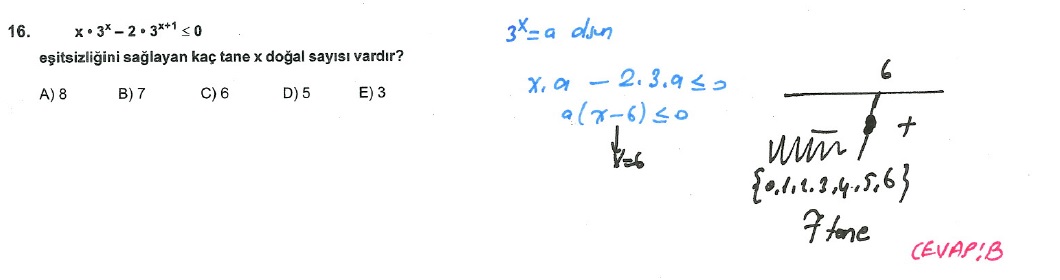 16. x • 3ˣ – 2 • 3ˣ⁺¹ ≤ 0
eşitsizliğini sağlayan kaç tane x doğal sayısı vardır?
A) 8 B) 7 C) 6 D) 5 E) 3
3ˣ = a olsun
x. a – 2. 3. a ≤ 0
a(x–6) ≤ 0
x=6
6
+
{0,1,2,3,4,5,6}
7 tane
CEVAP: B